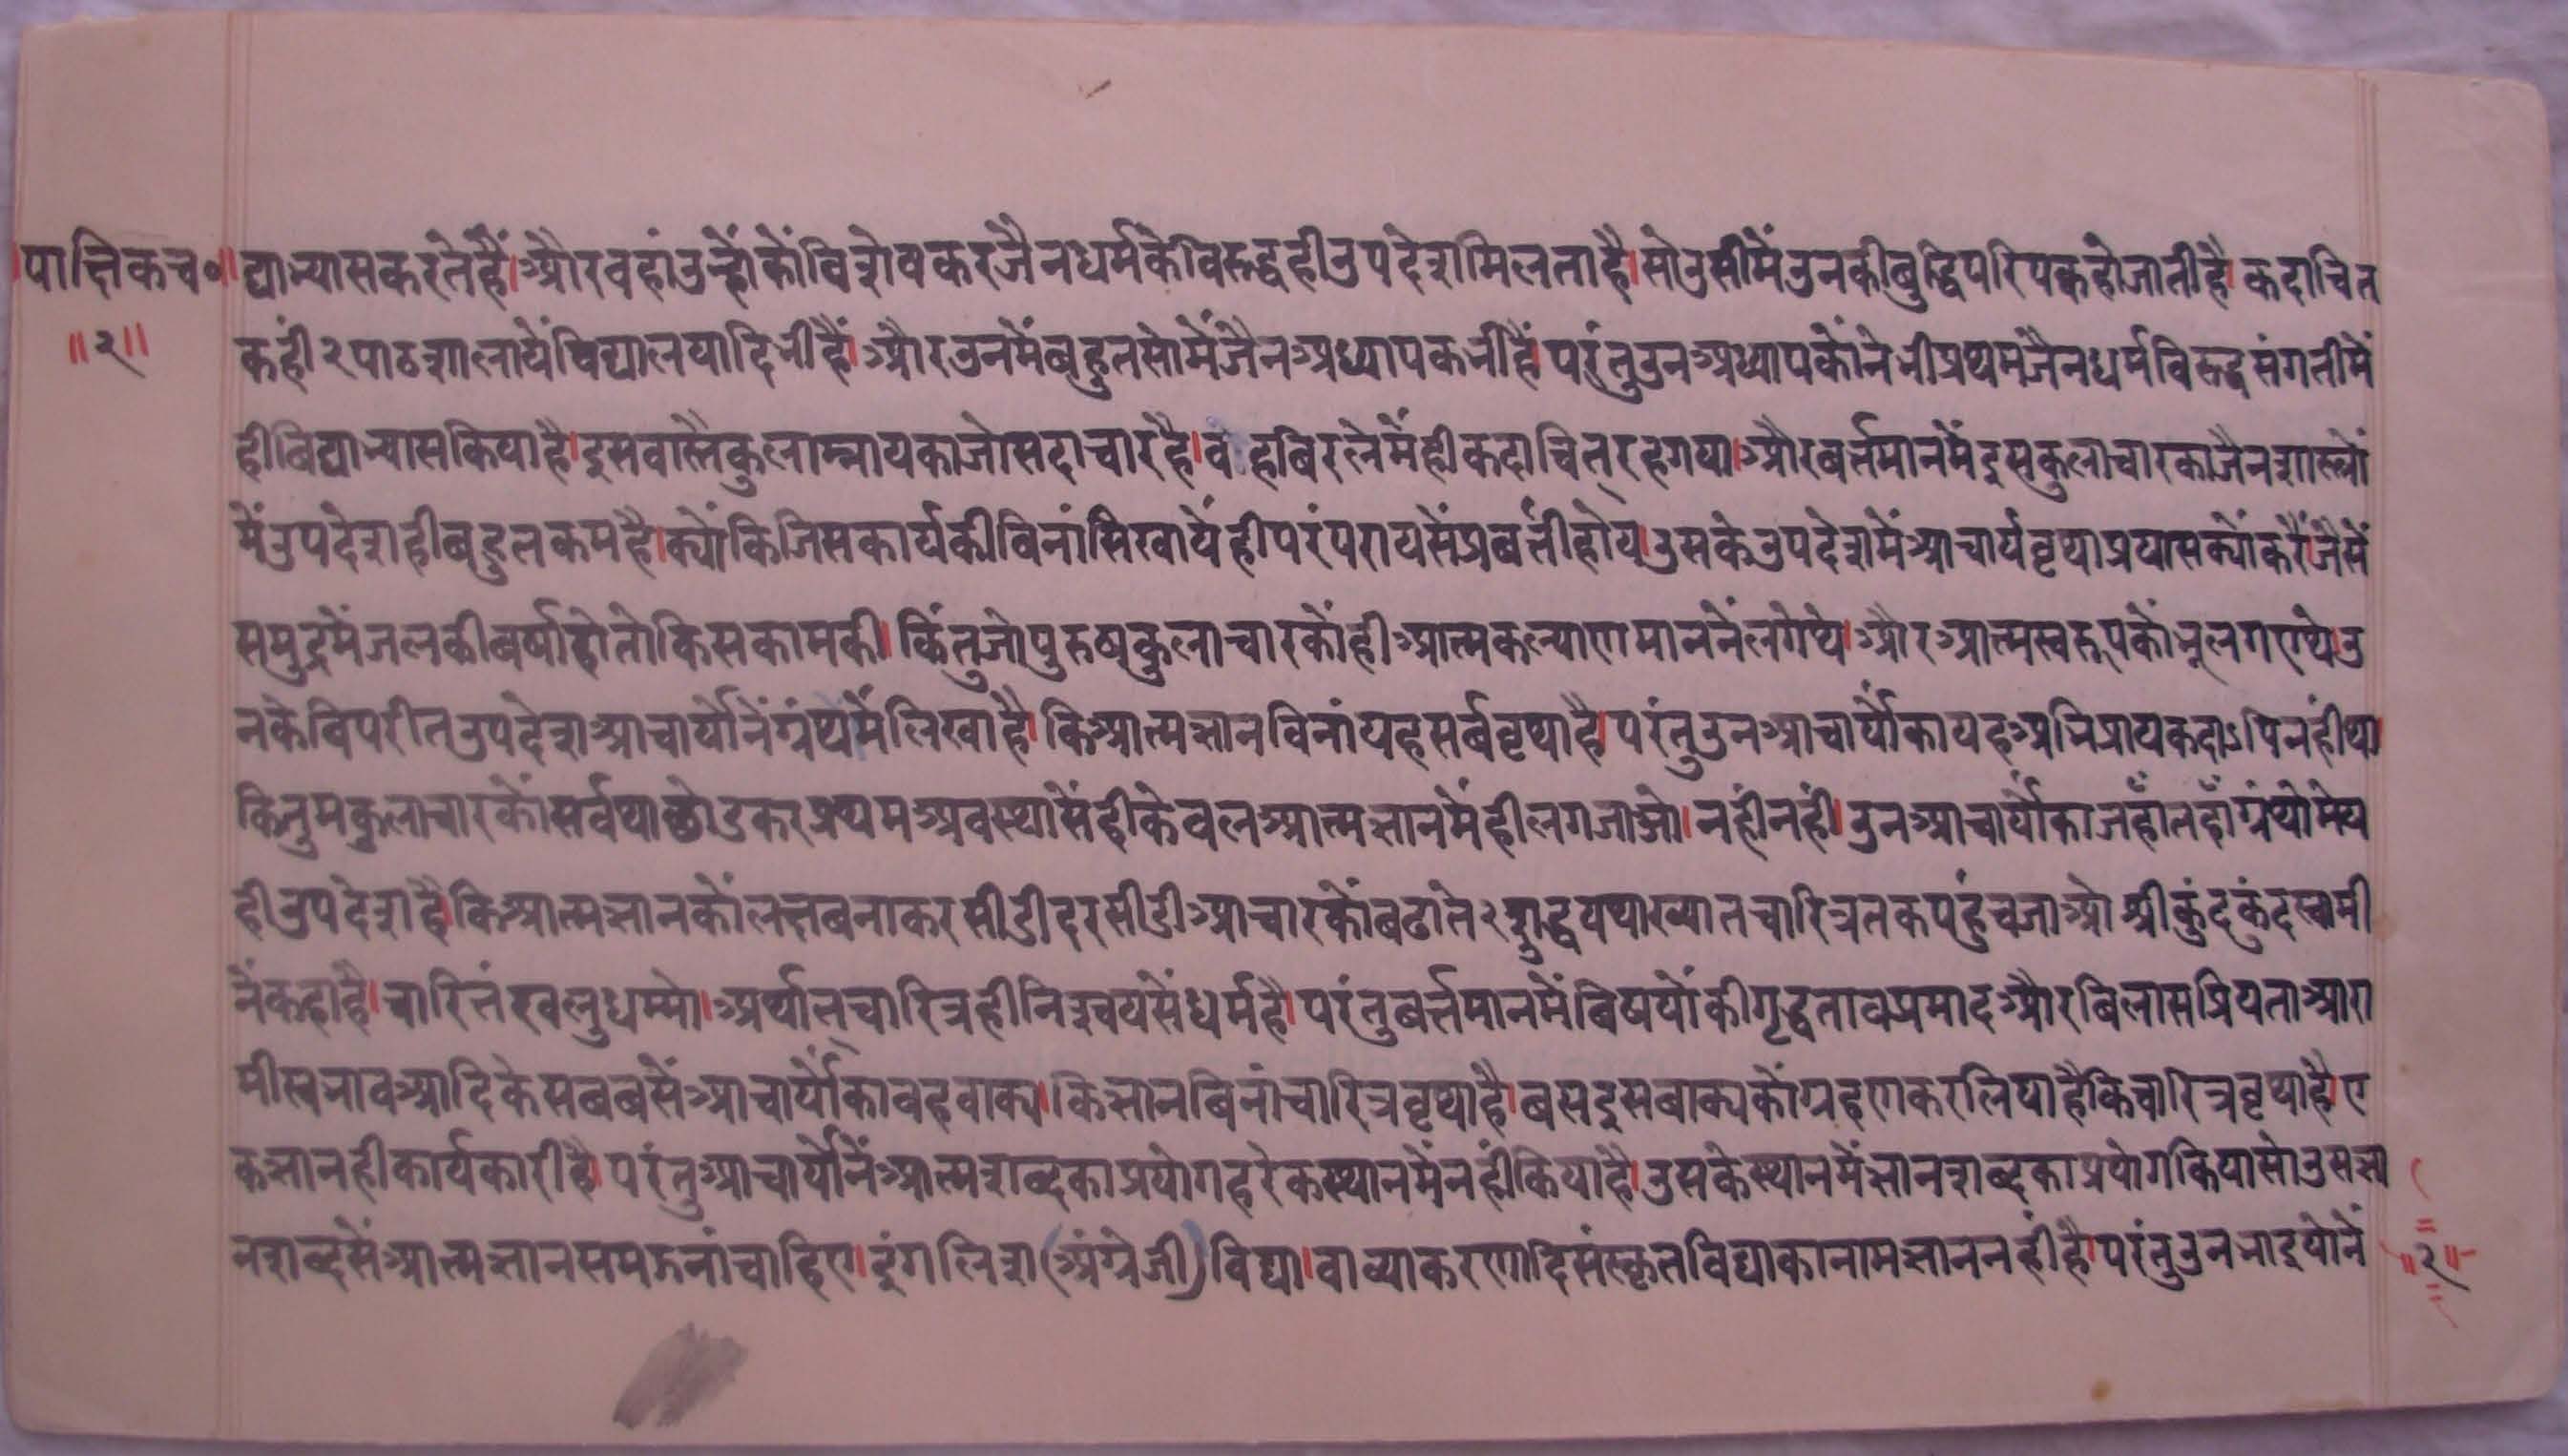 पाक्षिकच०
॥२॥
द्याभ्यासकरतेहैं।औरवहांउन्होंकोंविशेषकरजैनधर्मकेविरुद्धहीउपदेशमिलताहै।सोउसीमेंउनकीबुद्धिपरिपक्वहोजातीहै।कदाचित
कहीं२पाठशालायेंविद्यालयादिभीहैं।औरउनमेंबहुतसोमेंजैनअध्यापकभीहैं।परंतुउनअध्यापकोंनेभीप्रथमजैनधर्मविरुद्धसंगतीमें
हीविद्याभ्यासकियाहै।इसवास्तैकुलाम्नायकाजोसदाचारहै।वहबिरलेमेंहीकदाचित्रहगया।औरबर्त्तमानमेंइसकुलाचारकाजैनशास्त्रों
मेंउपदेशहीबहुतकमहै।क्योंकिजिसकार्यकीविनांसिखायेंहीपरंपरायसेंप्रबर्तीहोय।उसकेउपदेशमेंआचार्यवृथाप्रयासक्योंकरैं।जैसें
समुद्रमेंजलकीबर्षाहोतोकिसकामकी।किंतुजोपुरुषकुलाचारकोंहीआत्मकल्याणमाननेंलगेथे।औरआत्मस्वरूपकोंभूलगएथे।उ
नकेविपरीतउपदेशआचार्योंनेंग्रंथमेंलिखाहै।किआत्मज्ञानविनांयहसर्बवृथाहै।परंतुउनआचार्योंकायहअभिप्रायकदाऽपिनहींथा
कितुमकुलाचारकोंसर्वथाछोडकरप्रथमअवस्थासेंहीकेवलआत्मज्ञानमेंहीलगजाओ।नहींनहीं।उनआचार्योंकाजहाँतहाँग्रंथोमेंय
हीउपदेशहै।किआत्मज्ञानकोंलक्षबनाकरसीडीदरसीडीआचारकोंबढाते२शुद्धयथाख्यातचारित्रतकपहुंचजाओश्रीकुंदकुंदस्वामी
नेंकहाहै।चारित्तंखलुधम्मो।अर्थात्चारित्रहीनिश्चयसेंधर्महै।परंतुबर्त्तमानमेंबिषयोंकीगृद्धतावप्रमादऔरबिलासप्रियताआरा
मीस्वभावआदिकेसबबसेंआचार्योंकावहवाक्य।किज्ञानबिनांचारित्रवृथाहै।बसइसबाक्यकोंग्रहणकरलियाहैकिचारित्रवृथाहै।ए
कज्ञानहीकार्यकारीहै।परंतुआचार्योंनेंआत्मशब्दकाप्रयोगहरेकस्थानमेंनहींकियाहै।उसकेस्थानमेंज्ञानशब्दकाप्रयोगकियासोउसज्ञा
नशब्दसेंआत्मज्ञानसमजनांचाहिए।इंगलिश(अंग्रेजी)विद्या।वाव्याकरणादिसंस्कृतविद्याकानामज्ञाननहींहै।परंतुउनभाइयोनें
॥२॥